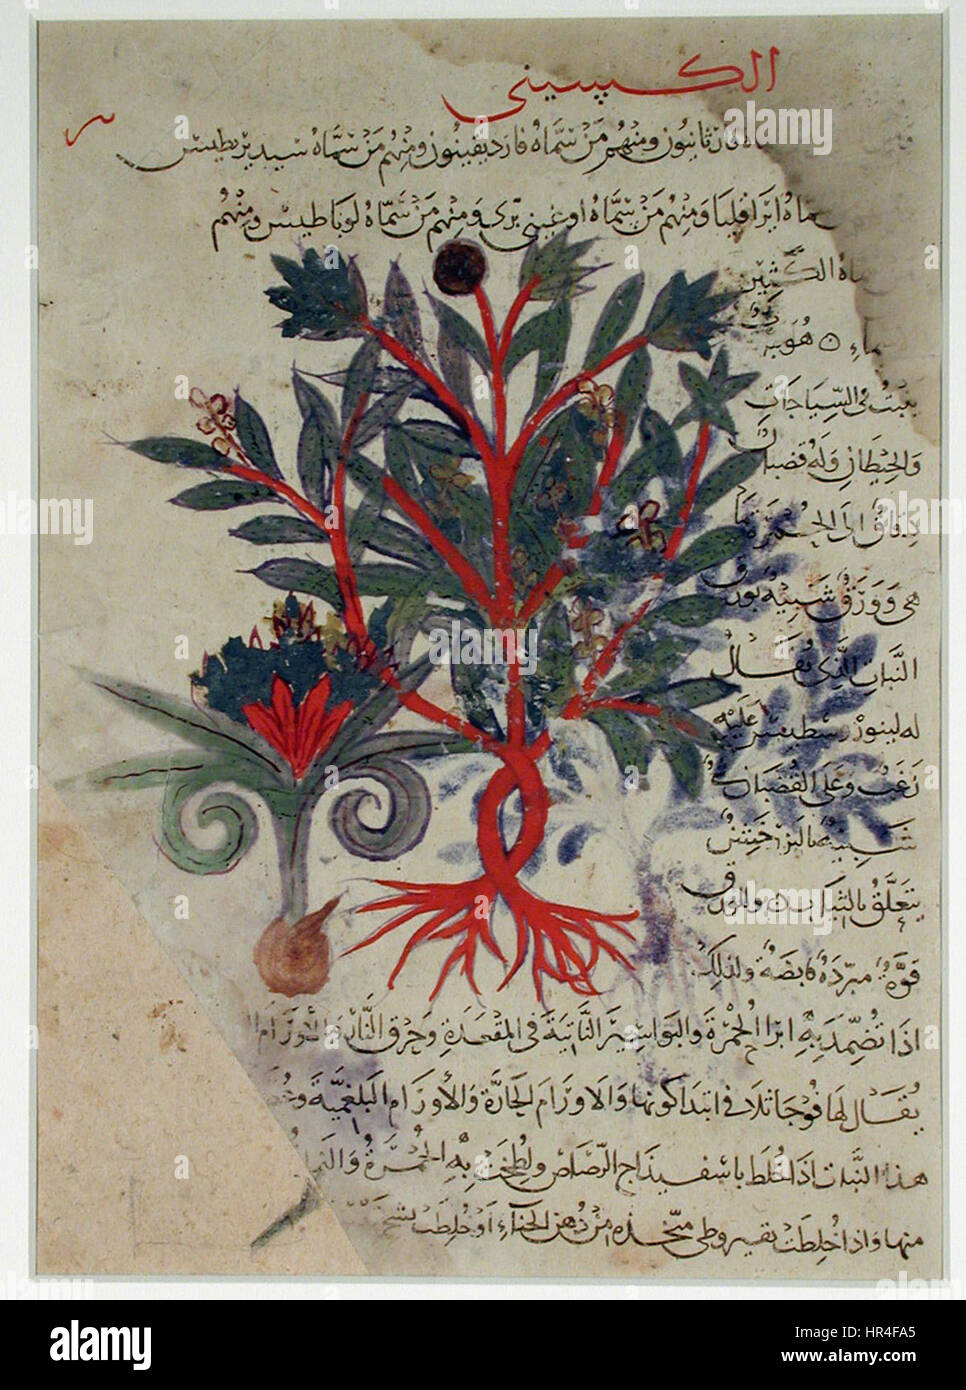 الكسيني
ومنهم من سماه فارديقينون ومنهم من سماه سيديريطيس
ماه ايراقليا ومنهم من سماه اوغيني بري ومنهم من سماه لوباطيس ومنهم
ماه الكثين
ماء ن هو
ينبت في السياجات
والحيطان وله قضبان
دقاق الى الحمرة ما
هي وورق شبيه بورق
النبات الذي يقال
له لينوزسطيس عليه
زغب وعلى القضبان
شبيه بالبزر خشن
يتعلق بالثياب ن وللورق
قوة مبردة قابضة ولذلك
اذا تضمد به ابرا الحمرة والبواسير الناتية في المقعدة وحرق النار والأورام
يقال لها فوجاثلا في ابتدا كونها والاورام الحارة والأورام البلغمية
هذا النبات اذا خلط باسفيذاج الرصاص ولطخت به الحمرة والنملة
منها واذا خلطت بقيروطي متخذه من دهن الحناء او خلطت بشحم
alamy
Image ID: HR4FA5
www.alamy.com